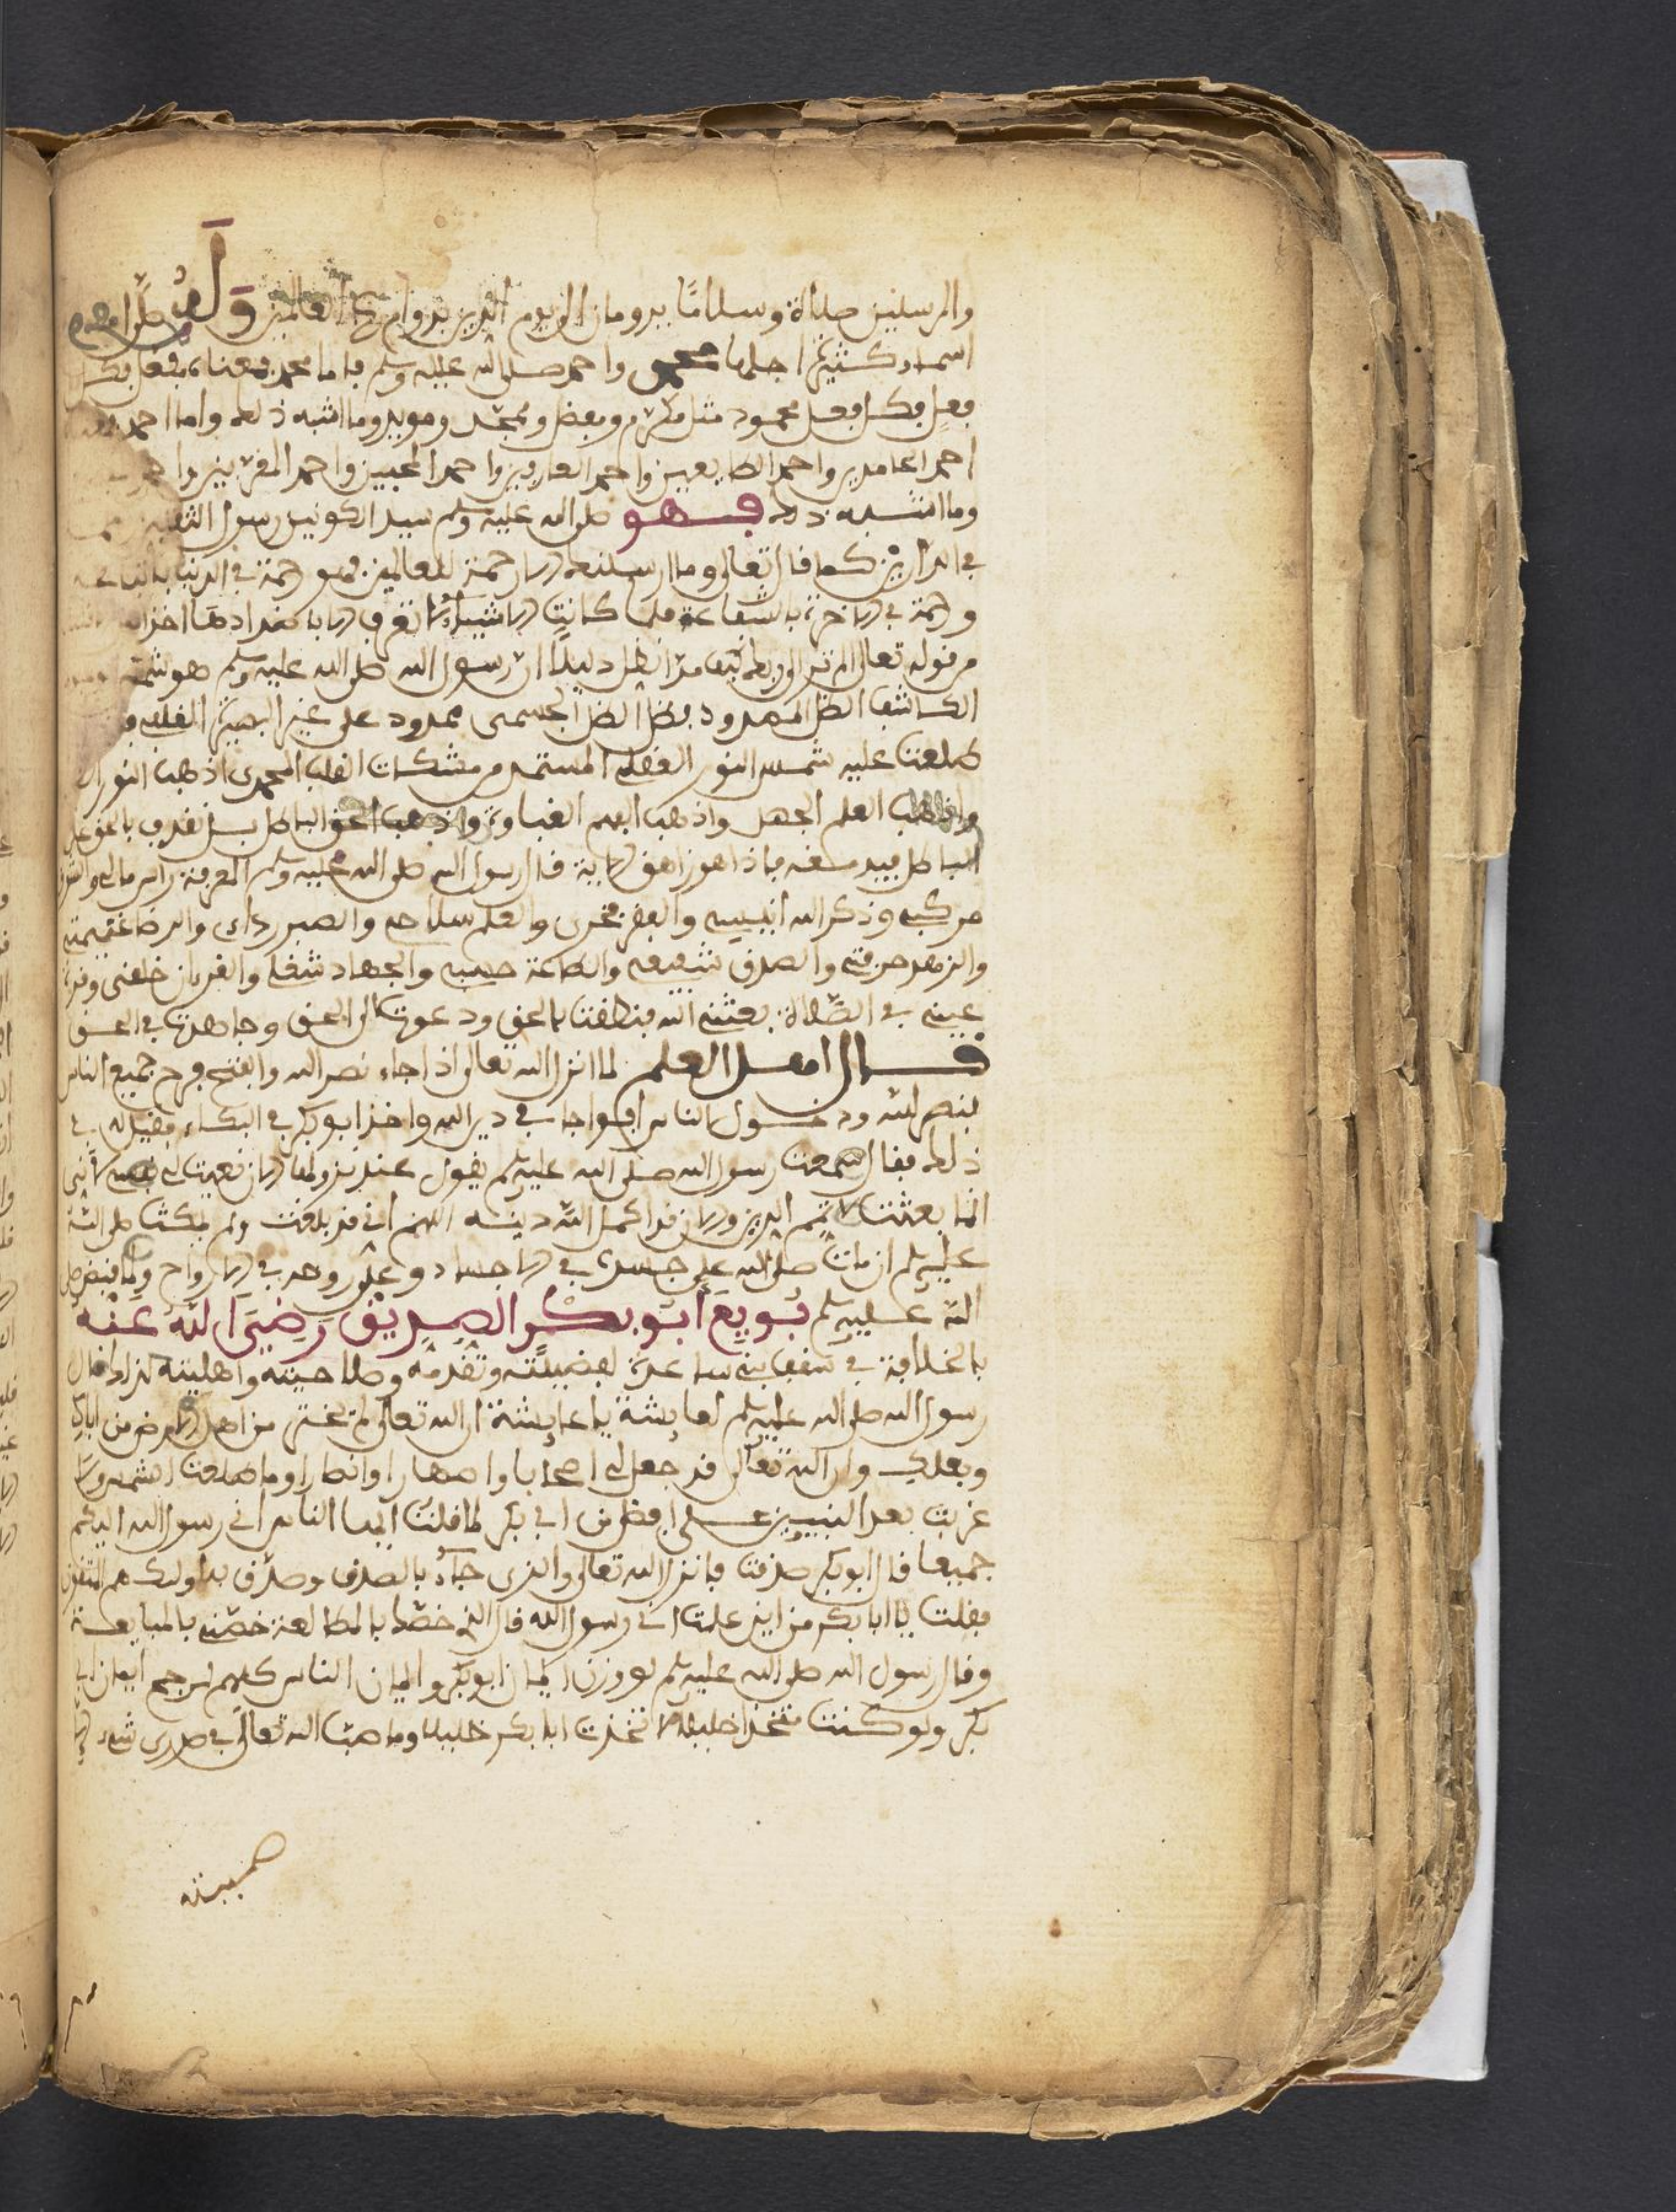 والمرسلين صلاة وسلاما يدومان الى يوم الدين بدوام رب العالمين وله صلى الله عليه وسلم
اسماء كثيرة اجلها محمد واحمد صلى الله عليه وسلم فاما محمد فمعناه فعل بكل
فعل فكل فعل محمود مثل مكرم ومعظم وممجد ومويد وما اشبه ذلك واما احمد
احمد الحامدين واحمد الطايعين واحمد العارفين واحمد المحبين واحمد المقربين واحمد
وما اشبه ذلك فهو صلى الله عليه وسلم سيد الكونين رسول الثقلين
في الدارين كما قال تعالى وما ارسلنك الا رحمة للعالمين فهو رحمة في الدنيا
ورحمة في الاخرة بالشفاعة فلما كانت الاشياء لا تعرف الا باضدادها اخذ
من قوله تعالى الم تر الى ربك كيف مد الظل دليلا ان رسول الله صلى الله عليه وسلم هو شمس
الكاشف الظل الممدود فظل الظل الجسمي ممدود على عين البصيرة القلبية
طلعت عليه شمس النور العقلي المستمد من مشكات القلب المحمدي اذهب النور
واذهب العلم الجهل واذهب الفهم الغباوة واذهب الحق الباطل بل نقذف بالحق على
الباطل فيدمغه فاذا هو زاهق الاية قال رسول الله صلى الله عليه وسلم المعرفة راس مالي والشوق
مركبي وذكر الله انيسي والفقر فخري والعلم سلاحي والصبر ردائي والرضا غنيمتي
والزهد حرفتي والصدق شفيعي والطاعة حسبي والجهاد شغلي والقران خلقي وقرة
عيني في الصلاة بعثني الله فنطقت بالحق ودعوت الى الحق وجاهدت في الحق
قال اهل العلم لما انزل الله تعالى اذا جاء نصر الله والفتح فرح جميع الناس
بنصر الله ودخول الناس افواجا في دين الله واخذ ابو بكر في البكاء فقيل له في
ذلك فقال سمعت رسول الله صلى الله عليه وسلم يقول عند نزولها الان نعيت لي نفسي لاني
انما بعثت لاتمم الدين والان قد اكمل الله دينه اللهم اني قد بلغت ولم يمكث صلى الله
عليه وسلم ان مات صلى الله على جسده في الاجساد وعلى روحه في الارواح ولما قبض صلى
الله عليه وسلم بويع ابو بكر الصديق رضي الله عنه
بالخلافة في سقيفة بني ساعدة لفضيلته وتقدمه وصلاحيته واهليته لذلك قال
رسول الله صلى الله عليه وسلم لعايشة يا عايشة ان الله تعالى لم يختر من اهل الارض من اباك
وبعلك وان الله تعالى قد جعل لي اصحابا واصهارا وانصارا وما طلعت شمس ولا
غربت بعد النبيين على افضل من ابي بكر لما قلت ايها الناس اني رسول الله اليكم
جميعا قال ابو بكر صدقت فانزل الله تعالى والذي جاء بالصدق وصدق به اولئك هم المتقون
فقلت يا ابا بكر من اين علمت اني رسول الله قال الذي خصك بالمطالعة خصني بالمبايعة
وقال رسول الله صلى الله عليه وسلم لو وزن ايمان ابو بكر وايمان الناس كلهم لرجح ايمان ابي
بكر ولو كنت متخذا خليلا لاتخذت ابا بكر خليلا وما صب الله تعالى في صدري شيء الا
صببته